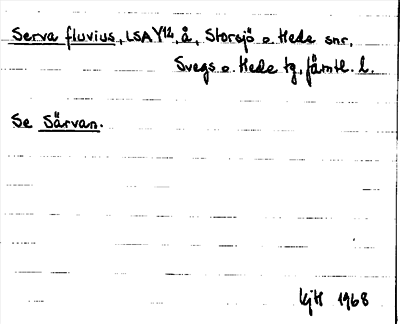 Serva fluvius, LSA Y12, å, Storsjö o. Hede snr,
Svegs o. Hede tg, jämtl. l.
Se Särvan.
KjH 1968